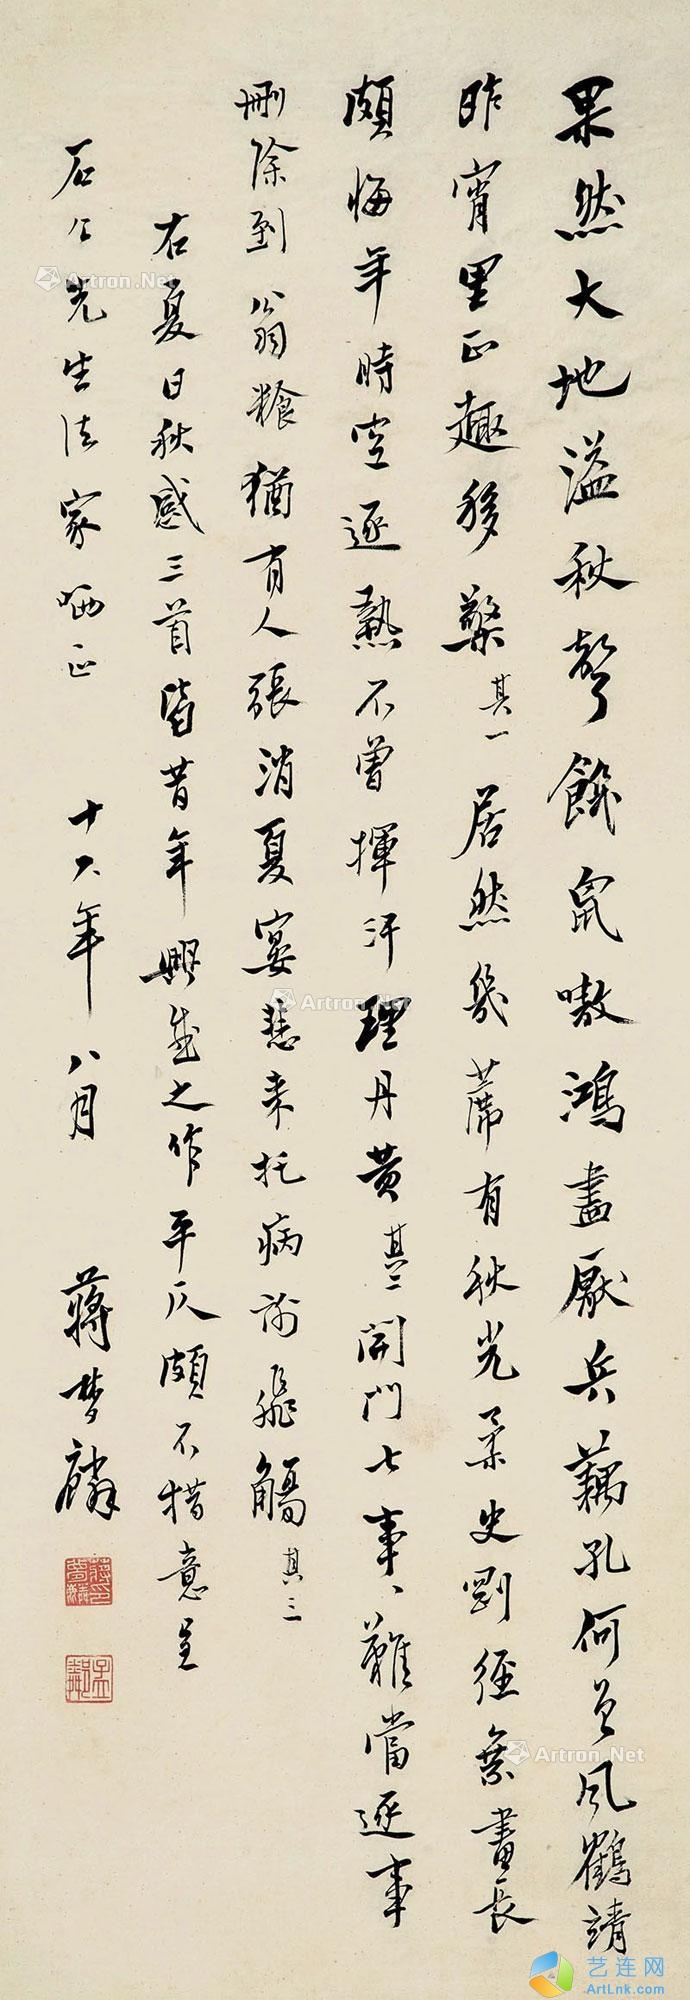 果然大地溢秋聲餓鼠嗷鴻盡厭兵藕孔何曾風鶴靖
昨宵里正趣移檠其一居然幾蓆有秋光柔史剛經晝長
頗悔年時空逐熱不曾揮汗理丹黃其二開門七事、難當逐事
刪除到翁餐猶有人張消夏宴託病謝飛觴其三
右夏日秋感三首皆昔年興至之作平仄頗不措意呈
石公先生法家哂正 十六年八月 蔣夢麟
蔣夢麟印
孟鄰
Artron.Net
Artron.Net
Artron.Net
Artron.Net
艺连网
ArtLnk.com